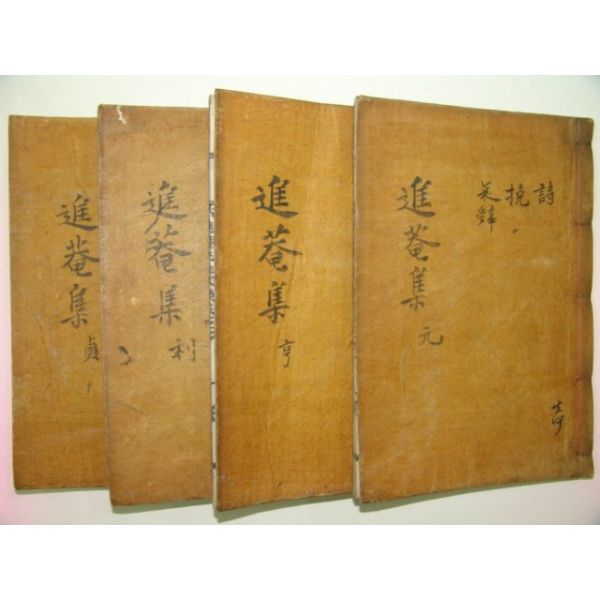 詩
挽
進菴集 元
進菴集 亨
進菴集 利
進菴集 貞